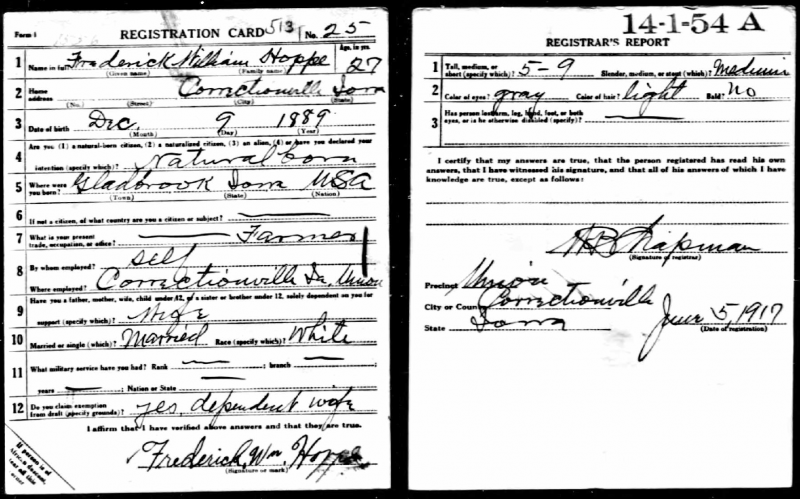 Form 1
REGISTRATION CARD 513 No. 25
1 Name in full Frederick William Hoppe Age, in yrs. 27
(Given name) (Family name)
2 Home address Correctionville Iowa
(No.) (Street) (City) (State)
3 Date of birth Dec. 9 1889
(Month) (Day) (Year)
Are you (1) a natural-born citizen, (2) a naturalized citizen, (3) an alien, (4) or have you declared your
4 intention (specify which)? Natural born
5 Where were you born? Gladbrook Iowa USA
(Town) (State) (Nation)
6 If not a citizen, of what country are you a citizen or subject?
7 What is your present trade, occupation, or office? Farmer
8 By whom employed? self
Where employed? Correctionville Ia. Union
9 Have you a father, mother, wife, child under 12, or a sister or brother under 12, solely dependent on you for
support (specify which)? Wife
10 Married or single (which)? Married Race (specify which)? White
11 What military service have you had? Rank ; branch
years ; Nation or State
12 Do you claim exemption from draft (specify grounds)? yes, dependent wife
I affirm that I have verified above answers and that they are true.
Frederick, Wm. Hoppe
(Signature or mark)
If person is of African descent,
14-1-54 A
REGISTRAR'S REPORT
1 Tall, medium, or short (specify which)? 5-9 Slender, medium, or stout (which)? Medium
2 Color of eyes? gray Color of hair? light Bald? No
3 Has person lost arm, leg, hand, foot, or both eyes, or is he otherwise disabled (specify)?
I certify that my answers are true, that the person registered has read his own
answers, that I have witnessed his signature, and that all of his answers of which I have
knowledge are true, except as follows:
Chapman
(Signature of registrar)
Precinct Union
City or County Correctionville
State Iowa June 5, 1917
(Date of registration)